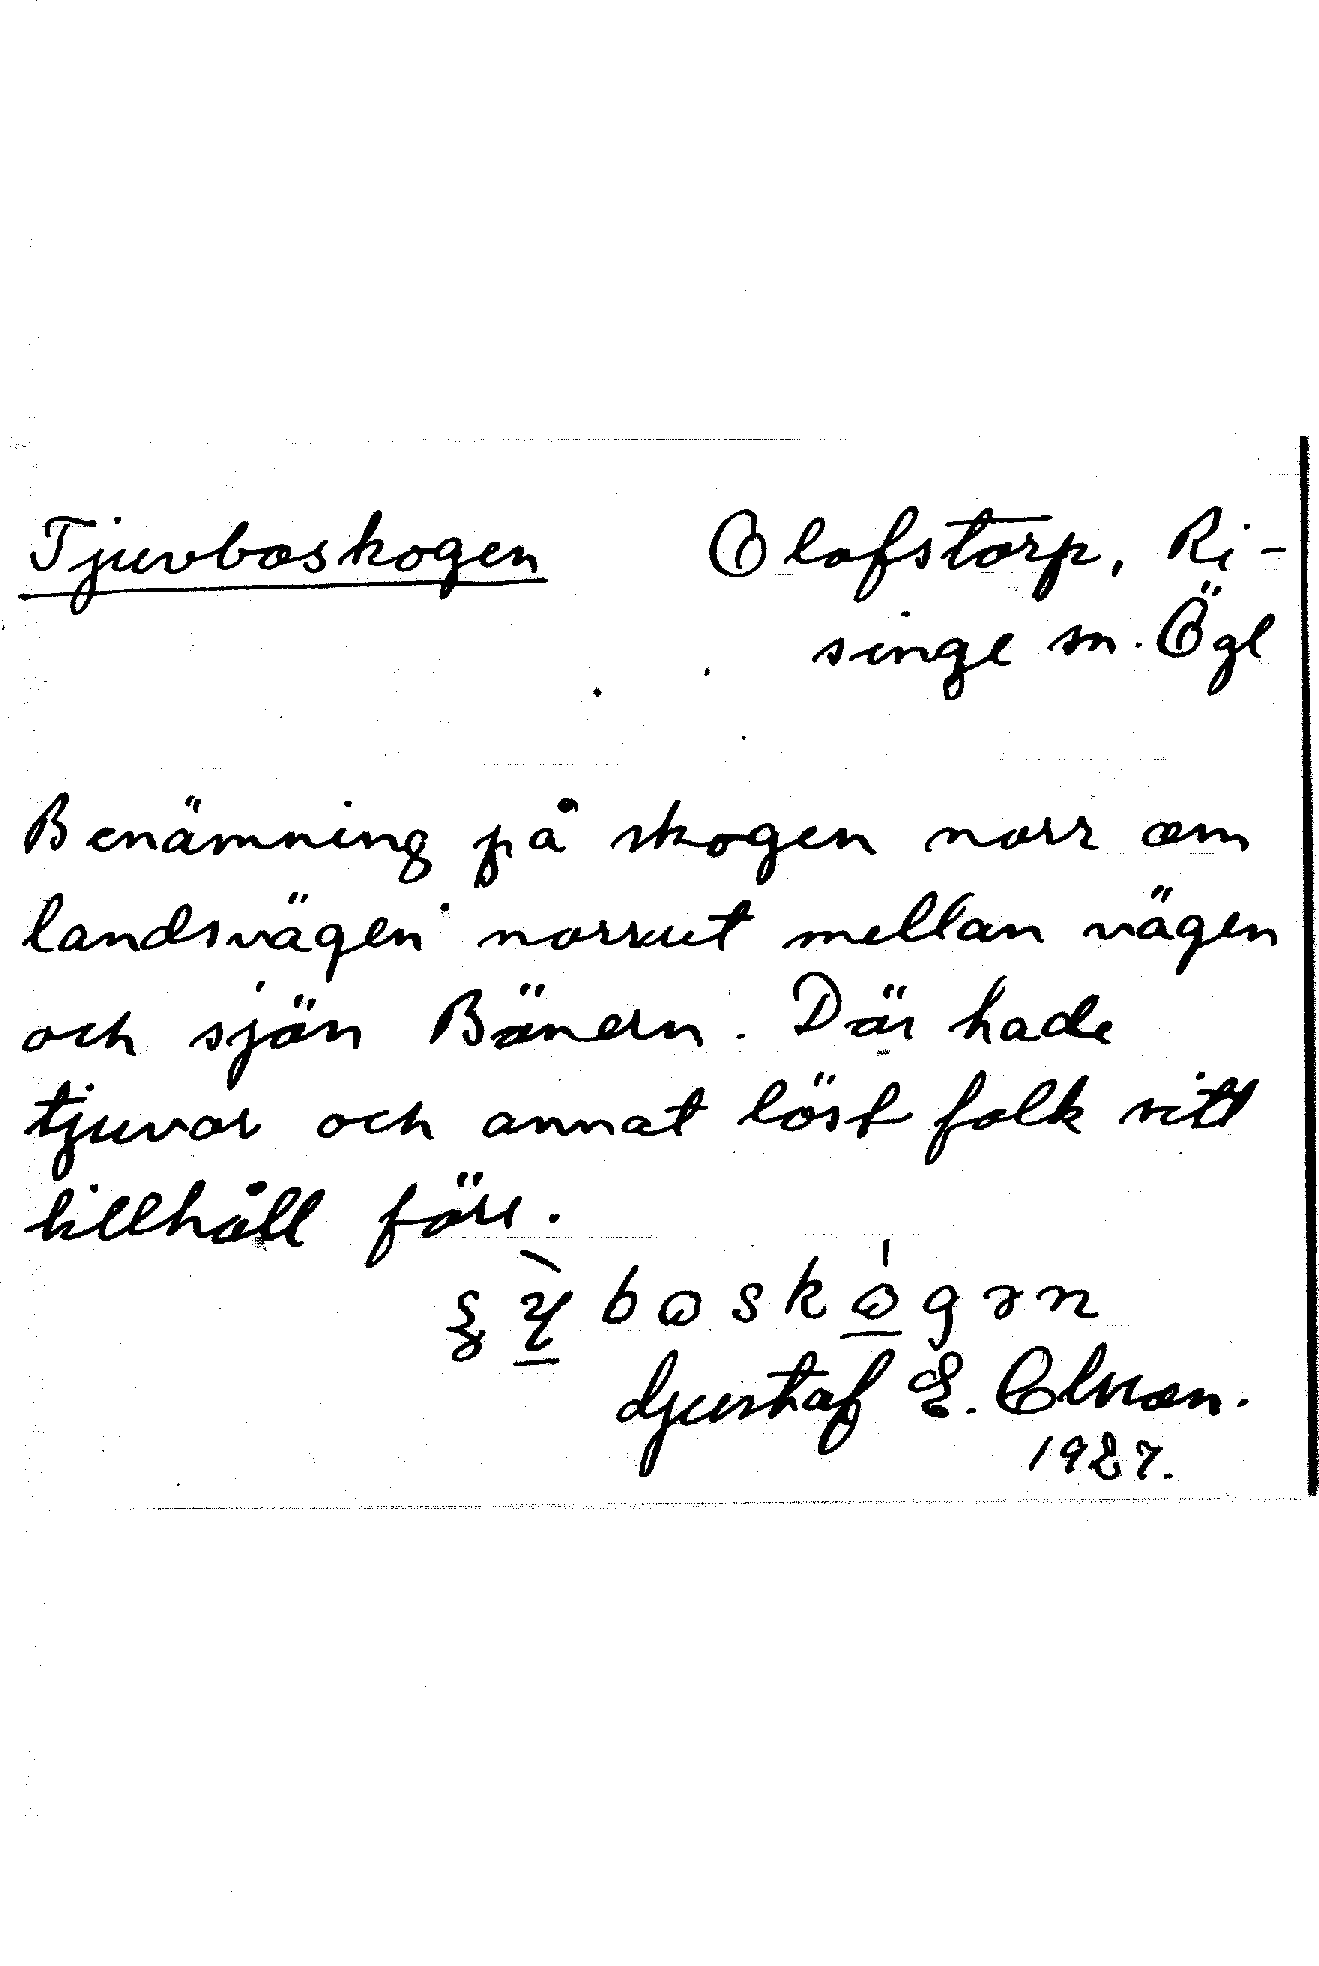 Tjuvboskogen Olofstorp, Ri-
singe sn. Ögl
Benämning på skogen norr om
landsvägen norrut mellan vägen
och sjön Bönnern. Där hade
tjuvar och annat löst folk sitt
tillhåll förr.
Gustaf E. Olsson.
1927.